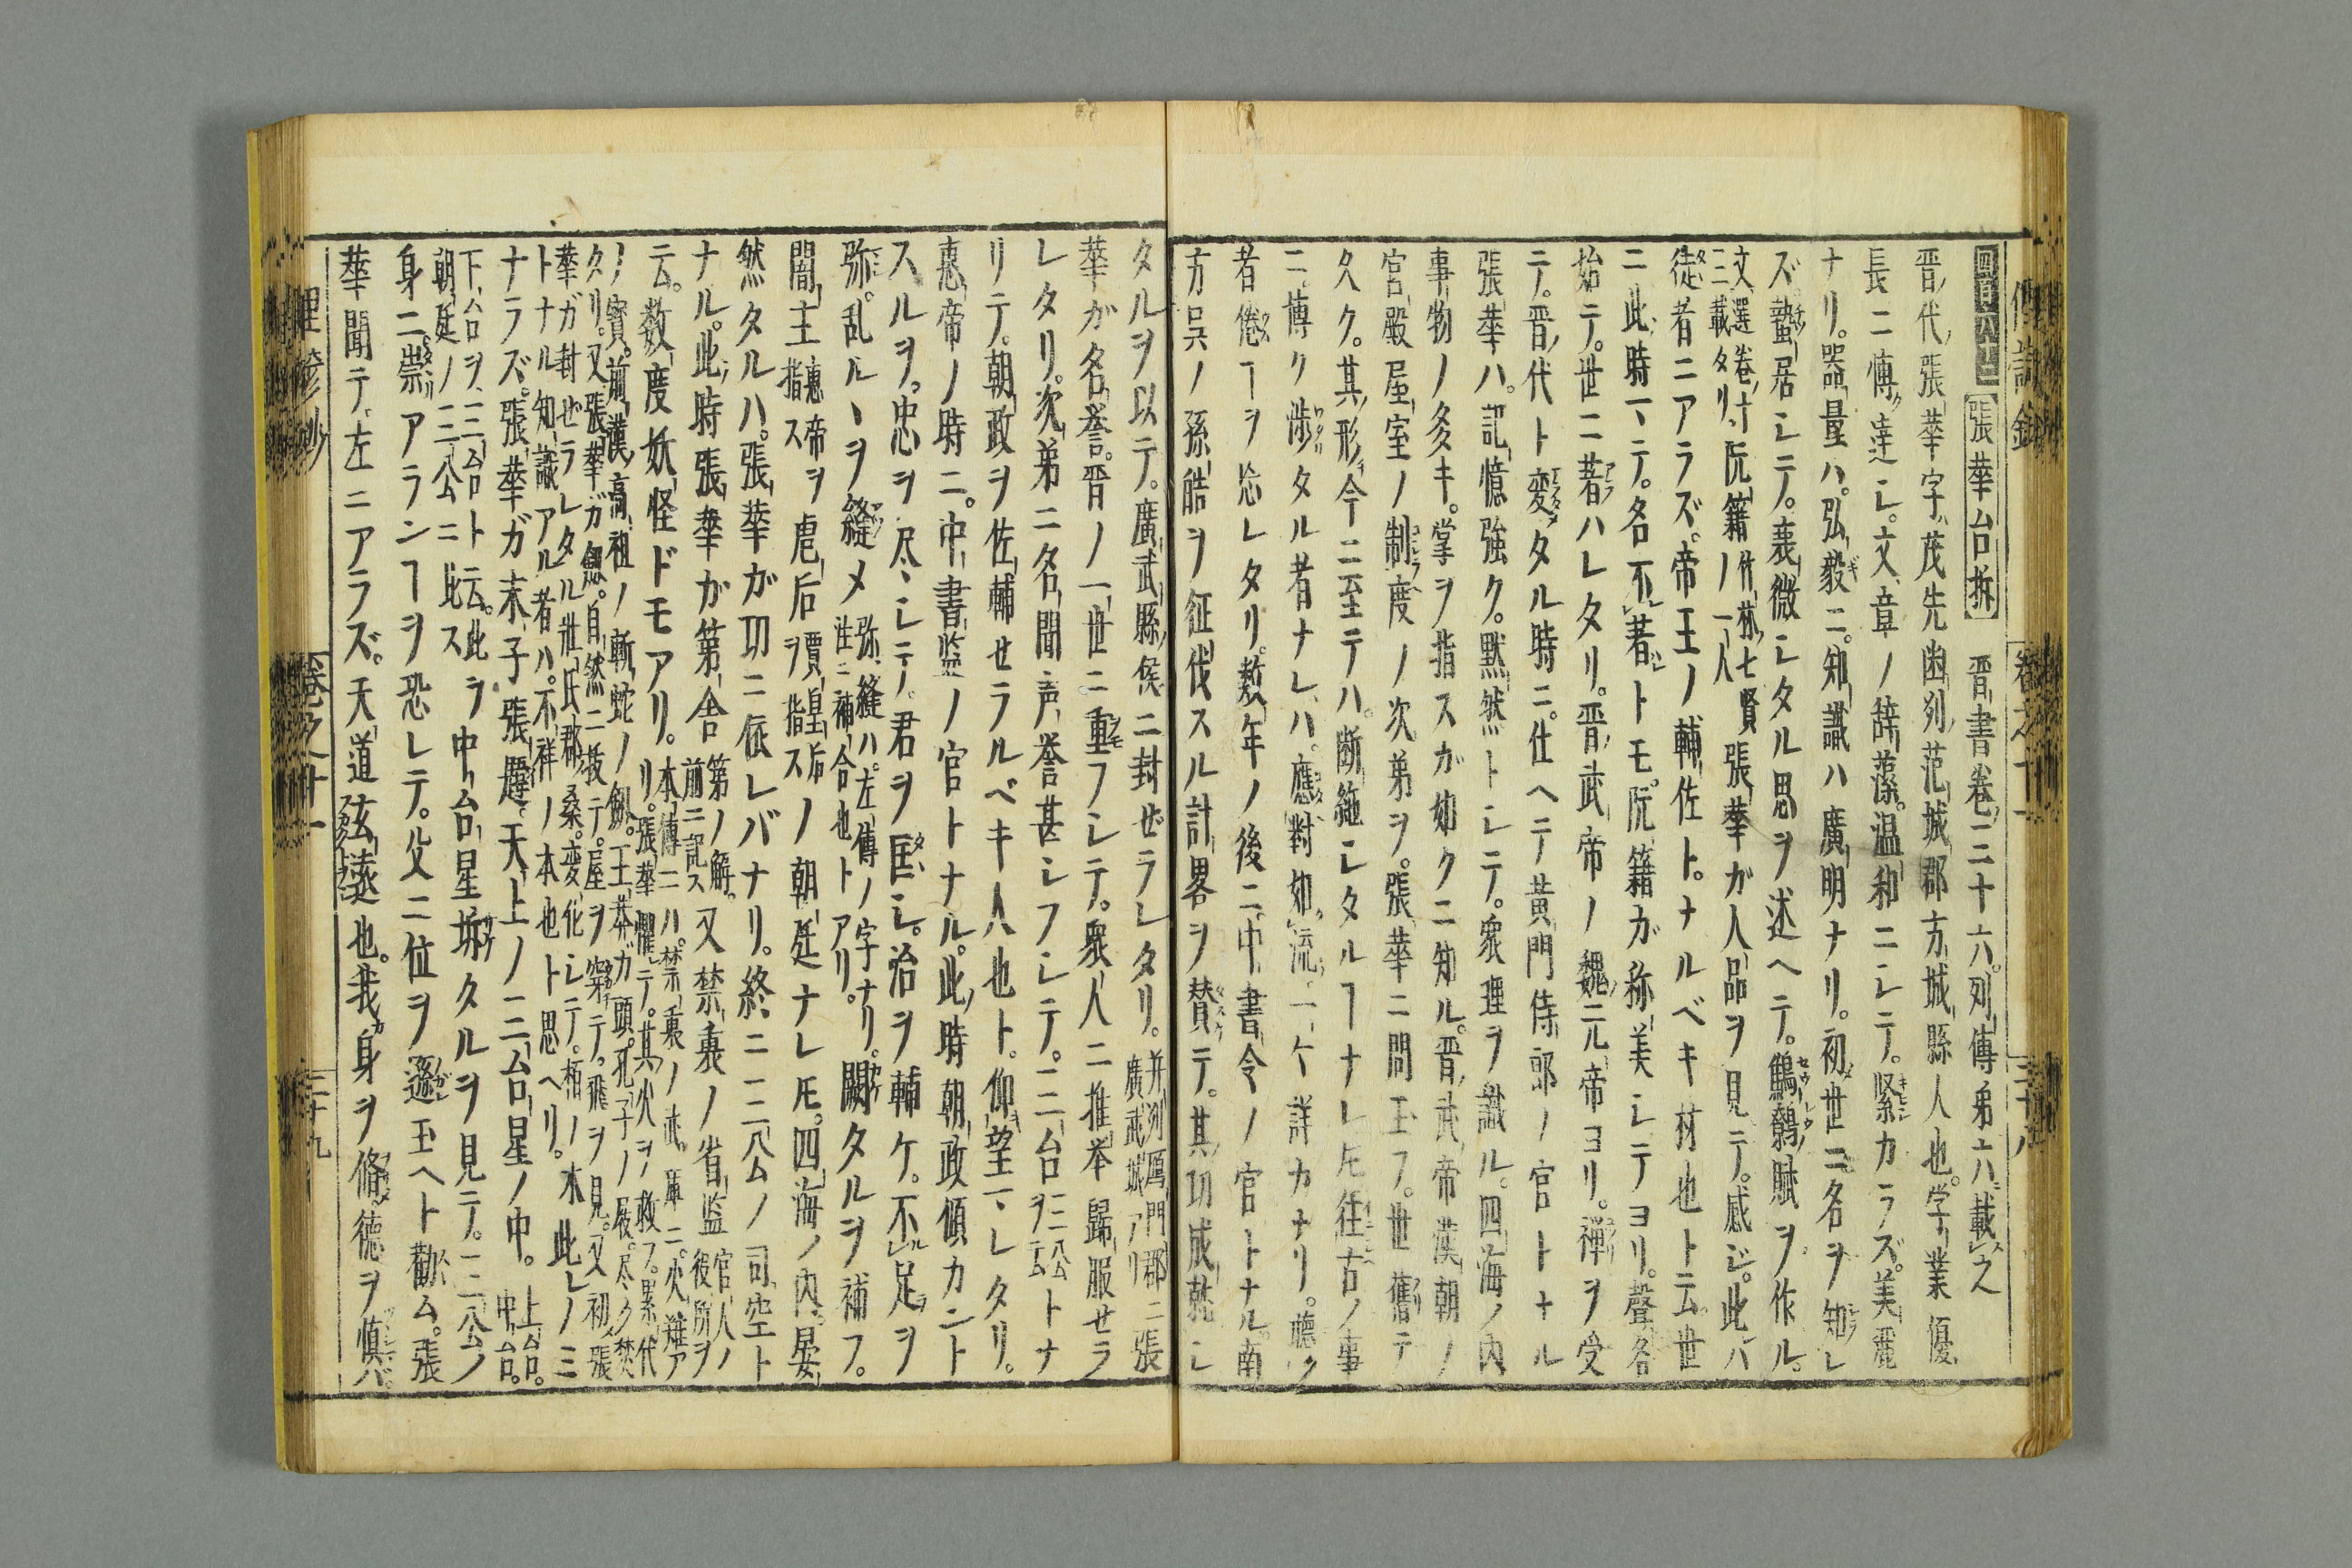 張華台拆　晋書巻三十六列傳第六ニ載之
晋ノ代張華字ハ茂先幽列范城郡方城縣人也学業優
長ニ傳達シ文章ノ辞藻温和ニシテ緊カラズ美麗
ナリ器量ハ弘毅ニ知識ハ廣明ナリ初世ニ名ヲ知レ
ズ蟄居シテ衰微シタル思ヲ述ヘテ鷦鷯賦ヲ作ル
文選巻十三ニ載タリ阮籍ノ竹林七賢一人張華ガ人品ヲ見テ感ジ此ハ
徒者ニアラズ帝王ノ輔佐トナルベキ材也ト云世
ニ此時マテ名不著トモ阮籍ガ称美シテヨリ聲名
始テ世ニ著ハレタリ晋武帝ノ魏元帝ヨリ禅ヲ受
テ晋代ト変タル時ニ仕ヘテ黄門侍郎ノ官トナル
張華ハ記憶強ク黙然トシテ衆理ヲ識ル四海ノ内
事物ノ多キ掌ヲ指スガ如クニ知ル晋武帝漢朝ノ
宮殿屋室ノ制度ノ次第ヲ張華ニ問玉フ世舊テ
久ク其形今ニ至テハ断絶シタルヿナレ𪜈往古ノ事
ニ博ク渉タル者ナレハ應對如流ニ詳カナリ聴ク
者倦ヿヲ忘レタリ数年ノ後ニ中書令ノ官トナル南
方呉ノ孫皓ヲ征伐スル計畧ヲ賛テ其功成就シ
タルヲ以テ廣武縣侯ニ封ゼラレタリ并列鴈門郡ニ廣武城アリ張
華ガ名誉晋ノ一世ニ重フシテ衆人ニ推挙歸服セラ
レタリ次第ニ名聞声誉甚シフシテ三台三公ヲ云トナ
リテ朝政ヲ佐輔セラルベキ人也ト仰望マレタリ
惠帝ノ時ニ中書監ノ官トナル此時朝政傾カント
スルヲ忠ヲ尽シテ君ヲ匡シ治ヲ輔ケ不足ヲ
弥乱ルヽヲ縫メ弥縫ハ左傳ノ字ナリ註ニ補合也トアリ闕タルヲ補フ
闇主惠帝ヲ指ス虐后賈皇后ヲ指スノ朝廷ナレ𪜈四海ノ内晏
然タルハ張華ガ功ニ依レバナリ終ニ三公ノ司空ト
ナル此時張華ガ第舎第ノ解前ニ記ス又禁裏ノ省監官人ノ後所ヲ
云数度妖怪ドモアリ本傳ニハ禁裏ノ武庫ニ火難アリ張華懼テ其火ヲ救フ累代
ノ寳前漢高祖ノ斬蛇ノ劔王莽ガ頭孔子ノ屐尽ク焚
タリ又張華ガ劔自然ニ抜テ屋ヲ穿テ飛ヲ見又初張
華ガ封ゼラレタル壮武郡桑変化シテ栢ノ木
トナル知識アル者ハ不祥ノ本也ト思ヘリ此レノミ
ナラズ張華ガ末子張韙天上ノ三台星ノ中上台中台
下台ヲ三台ト云此ラ朝廷ノ三公ニ比ス中台星坼タルヲ見テ三公ノ
身ニ祟アランヿヲ恐レテ父ニ位ヲ遜玉ヘト勸ム張
華聞テ左ニアラズ天道玄遠也我身ヲ脩徳ヲ慎バ
卷之十一
三十八
卷之十一
三十九